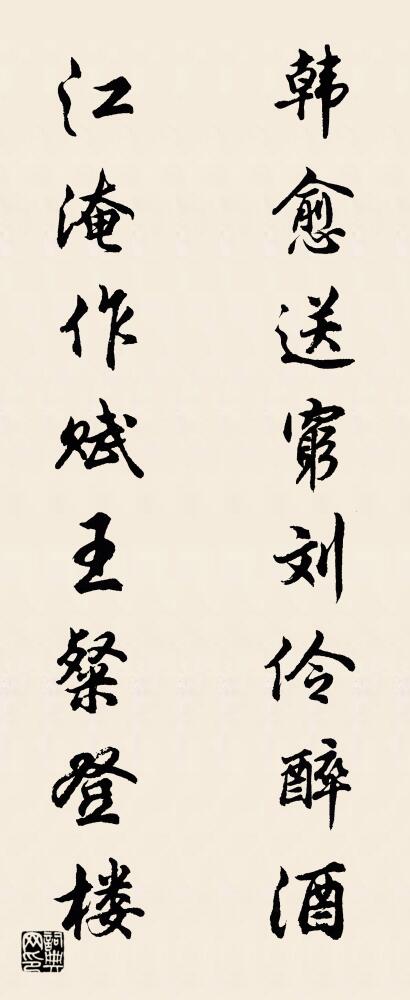 韩愈送穷刘伶醉酒
江淹作赋王粲登楼
詞典网印